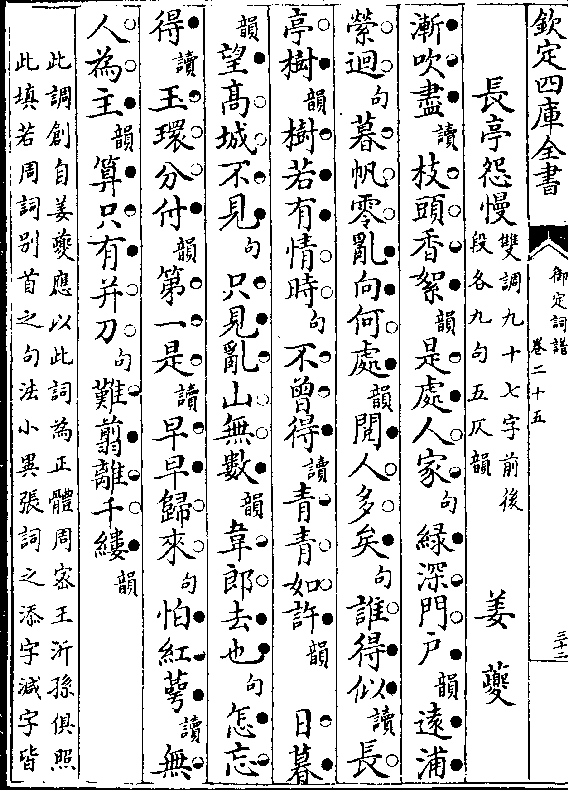 欽定四庫全書
御定詞譜
卷二十五
三十二
長亭怨慢
雙調九十七字前後
段各九句五仄韻
姜夔
漸吹盡讀枝頭香絮韻是處人家句綠深門戶韻遠浦
縈迴句暮帆零亂向何處韻閱人多矣句誰得似讀長
亭樹韻樹若有情時句不曾得讀青青如許韻日暮
韻望高城不見句只見亂山無數韻韋郎去也句怎忘
得讀玉環分付韻第一是讀早早歸來句怕紅萼讀無
人為主韻算只有并刀句難翦離千縷韻
此調創自姜夔應以此詞為正體周密王沂孫俱照
此填若周詞别首之句法小異張詞之添字減字皆